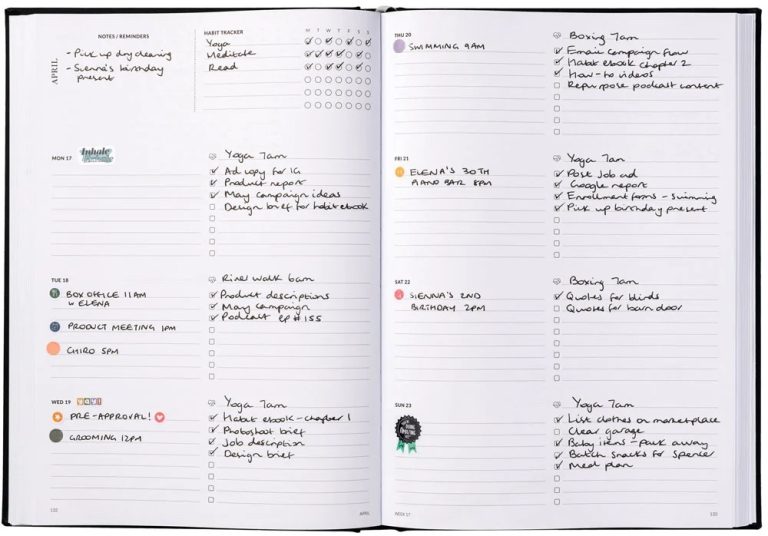 NOTES / REMINDERS
APRIL
- Pick up dry cleaning
- Sienna's birthday
present
HABIT TRACKER
M T W T F S S
Yoga
Meditate
Read
MON 17
Inhale
Yoga 7am
Ad copy for IG
Product report
May campaign ideas
Design brief for habit ebook
TUE 18
BOX OFFICE 11AM
W ELENA
PRODUCT MEETING 1PM
CHIRO 5PM
River walk 6am
Product descriptions
May campaign
Podcast ep #155
WED 19
YAY!
PRE-APPROVAL!
GROOMING 12PM
Yoga 7am
Habit ebook - chapter 1
Photoshoot brief
Job description
Design brief
132
APRIL
THU 20
SWIMMING 9AM
Boxing 7am
Email campaign flow
Habit ebook chapter 2
How-to videos
Repurpose podcast content
FRI 21
ELENA'S 30TH
BAR 8PM
Yoga 7am
Pose Job ad
Google report
Enrollment forms - swimming
Pick up birthday present
SAT 22
SIENNA'S 2ND
BIRTHDAY 2PM
Boxing 7am
Quotes for blinds
Quotes for barn door
SUN 23
Yoga 7am
List clothes on marketplace
Clear garage
Baby items - pack away
Batch snacks for Spencer
Meal plan
WEEK 17
133